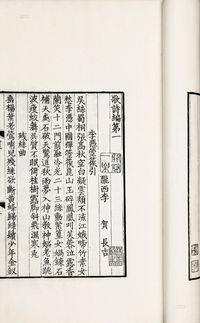 歌詩編第一
隴西李　賀　長吉
李憑箜篌引
吳絲蜀桐張高秋空白凝雲頹不流江娥啼竹素女
愁李憑中國彈箜篌崑山玉碎鳳凰叫芙蓉泣露香
蘭笑十二門前融冷光二十三絲動紫皇女媧鍊石
補天處石破天驚逗秋雨夢入神山教神嫗老魚跳
波瘦蛟舞吳質不眠倚桂樹露脚斜飛濕寒兔
殘絲曲
垂楊葉老鶯哺兒殘絲欲斷黃蜂歸綠鬢少年金釵